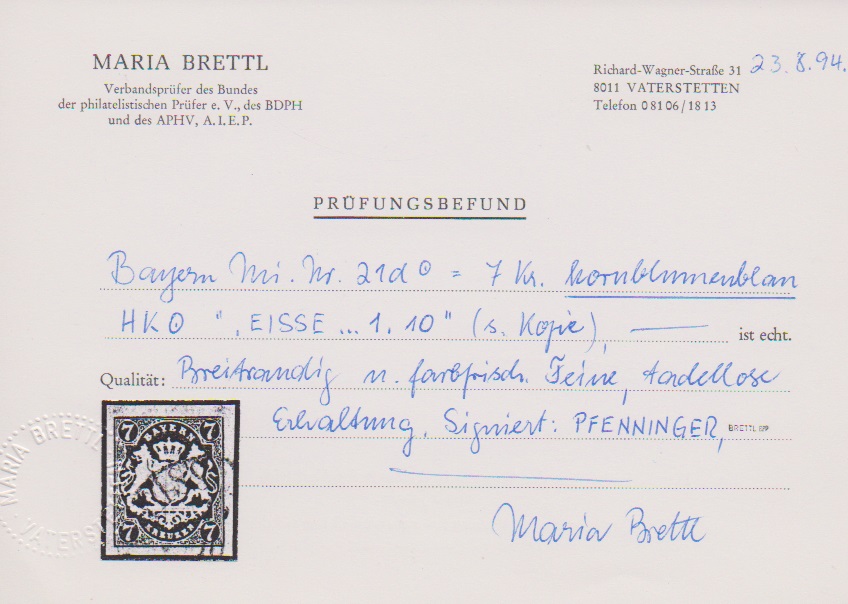 MARIA BRETTL
Verbandsprüfer des Bundes
der philatelistischen Prüfer e. V., des BDPH
und des APHV, A.I.E.P.
Richard-Wagner-Straße 31
8011 VATERSTETTEN
Telefon 08106/1813
23.8.94.
PRÜFUNGSBEFUND
Bayern Mi. Nr. 21d ⊙ = 7 Kr. kornblumenblau
HK⊙ ", EISSE ... 1. 10" (s. Kopie), ist echt.
Qualität: Breitrandig u. farbfrisch. Feine, tadellose
Erhaltung. Signiert: PFENNINGER, BRETTL
7 7
BAYERN
KREUZER
7 7
MARIA BRETTL
Maria Brettl